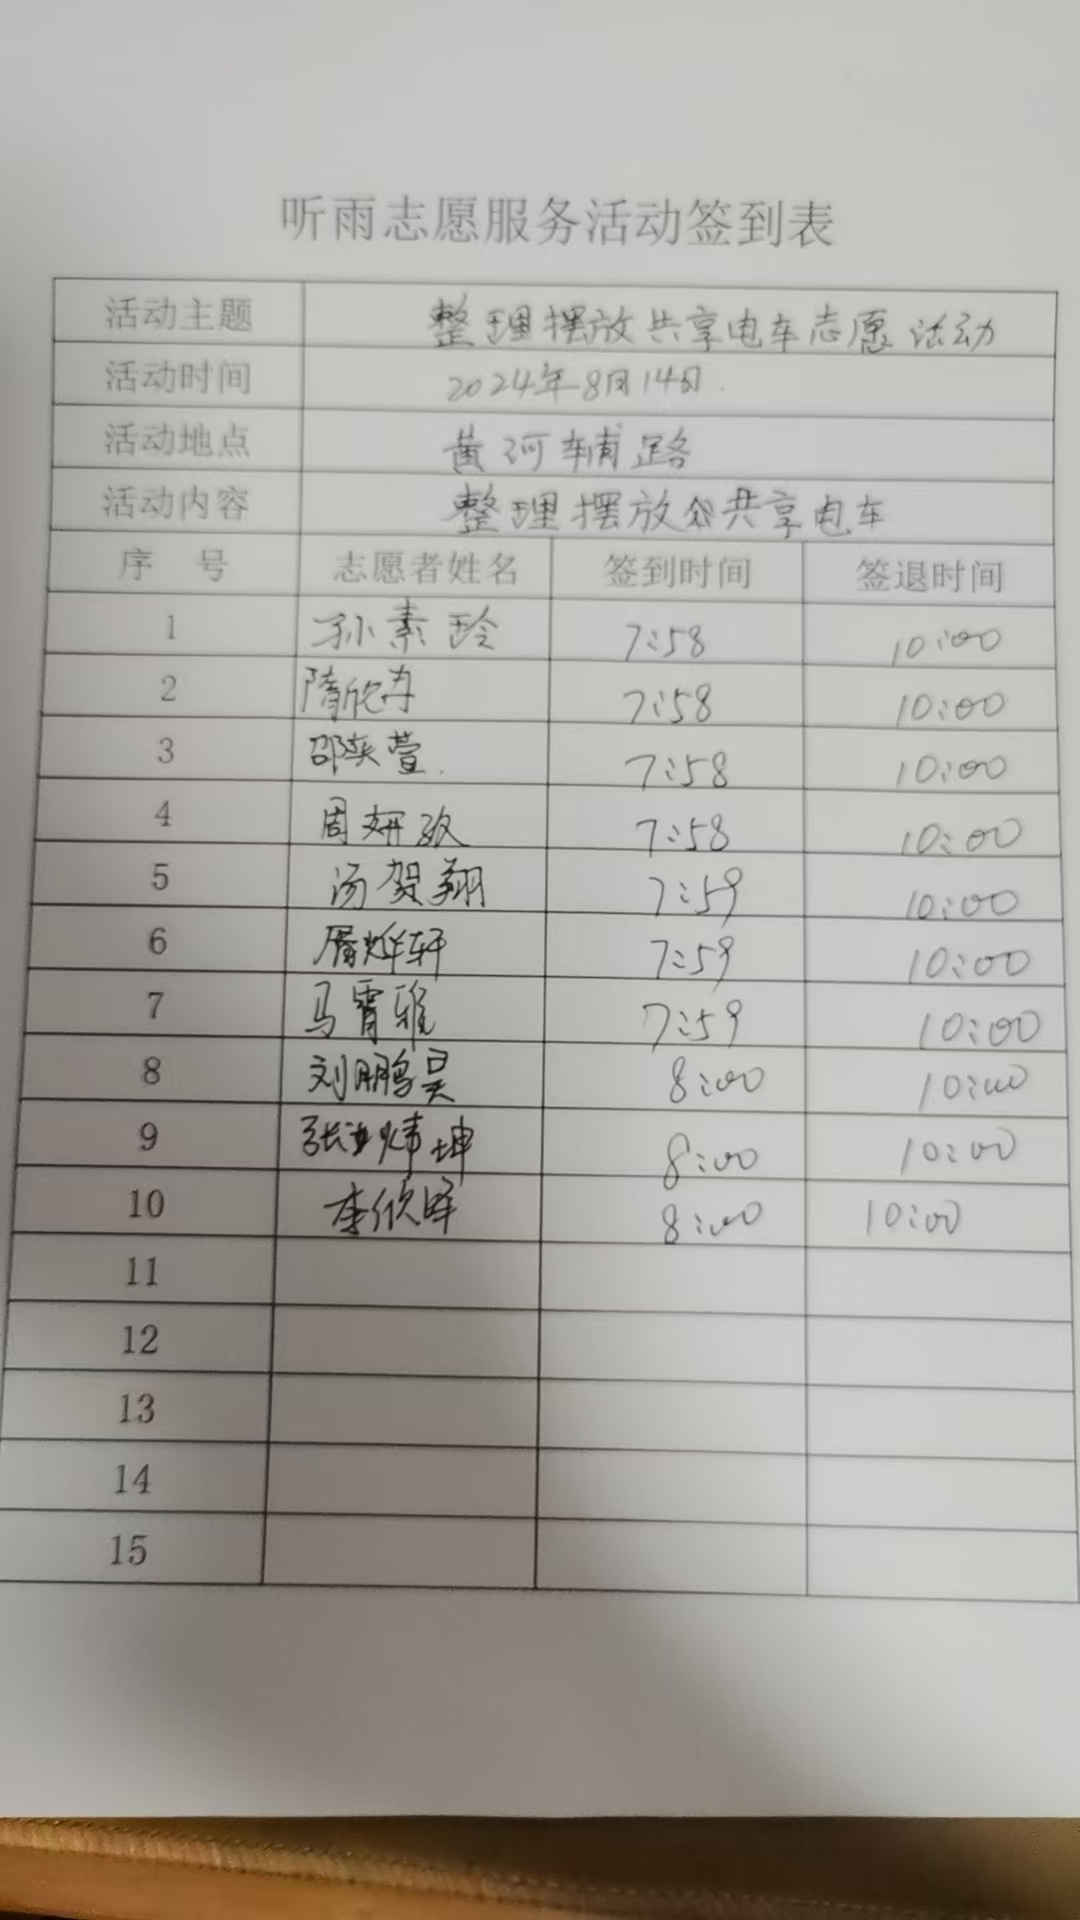 听雨志愿服务活动签到表
活动主题 整理摆放共享电车志愿活动
活动时间 2024年8月14日.
活动地点 黄河辅路
活动内容 整理摆放 共享电车
序 号 志愿者姓名 签到时间 签退时间
1 孙素玲 7:58 10:00
2 隋欣冉 7:58 10:00
3 邵奕萱. 7:58 10:00
4 周妍 7:58 10:00
5 汤贺翔 7:59 10:00
6 烨轩 7:59 10:00
7 马霄雅 7:59 10:00
8 刘鹏昊 8:00 10:00
9 张 炜坤 8:00 10:00
10 李欣泽 8:00 10:00
11
12
13
14
15